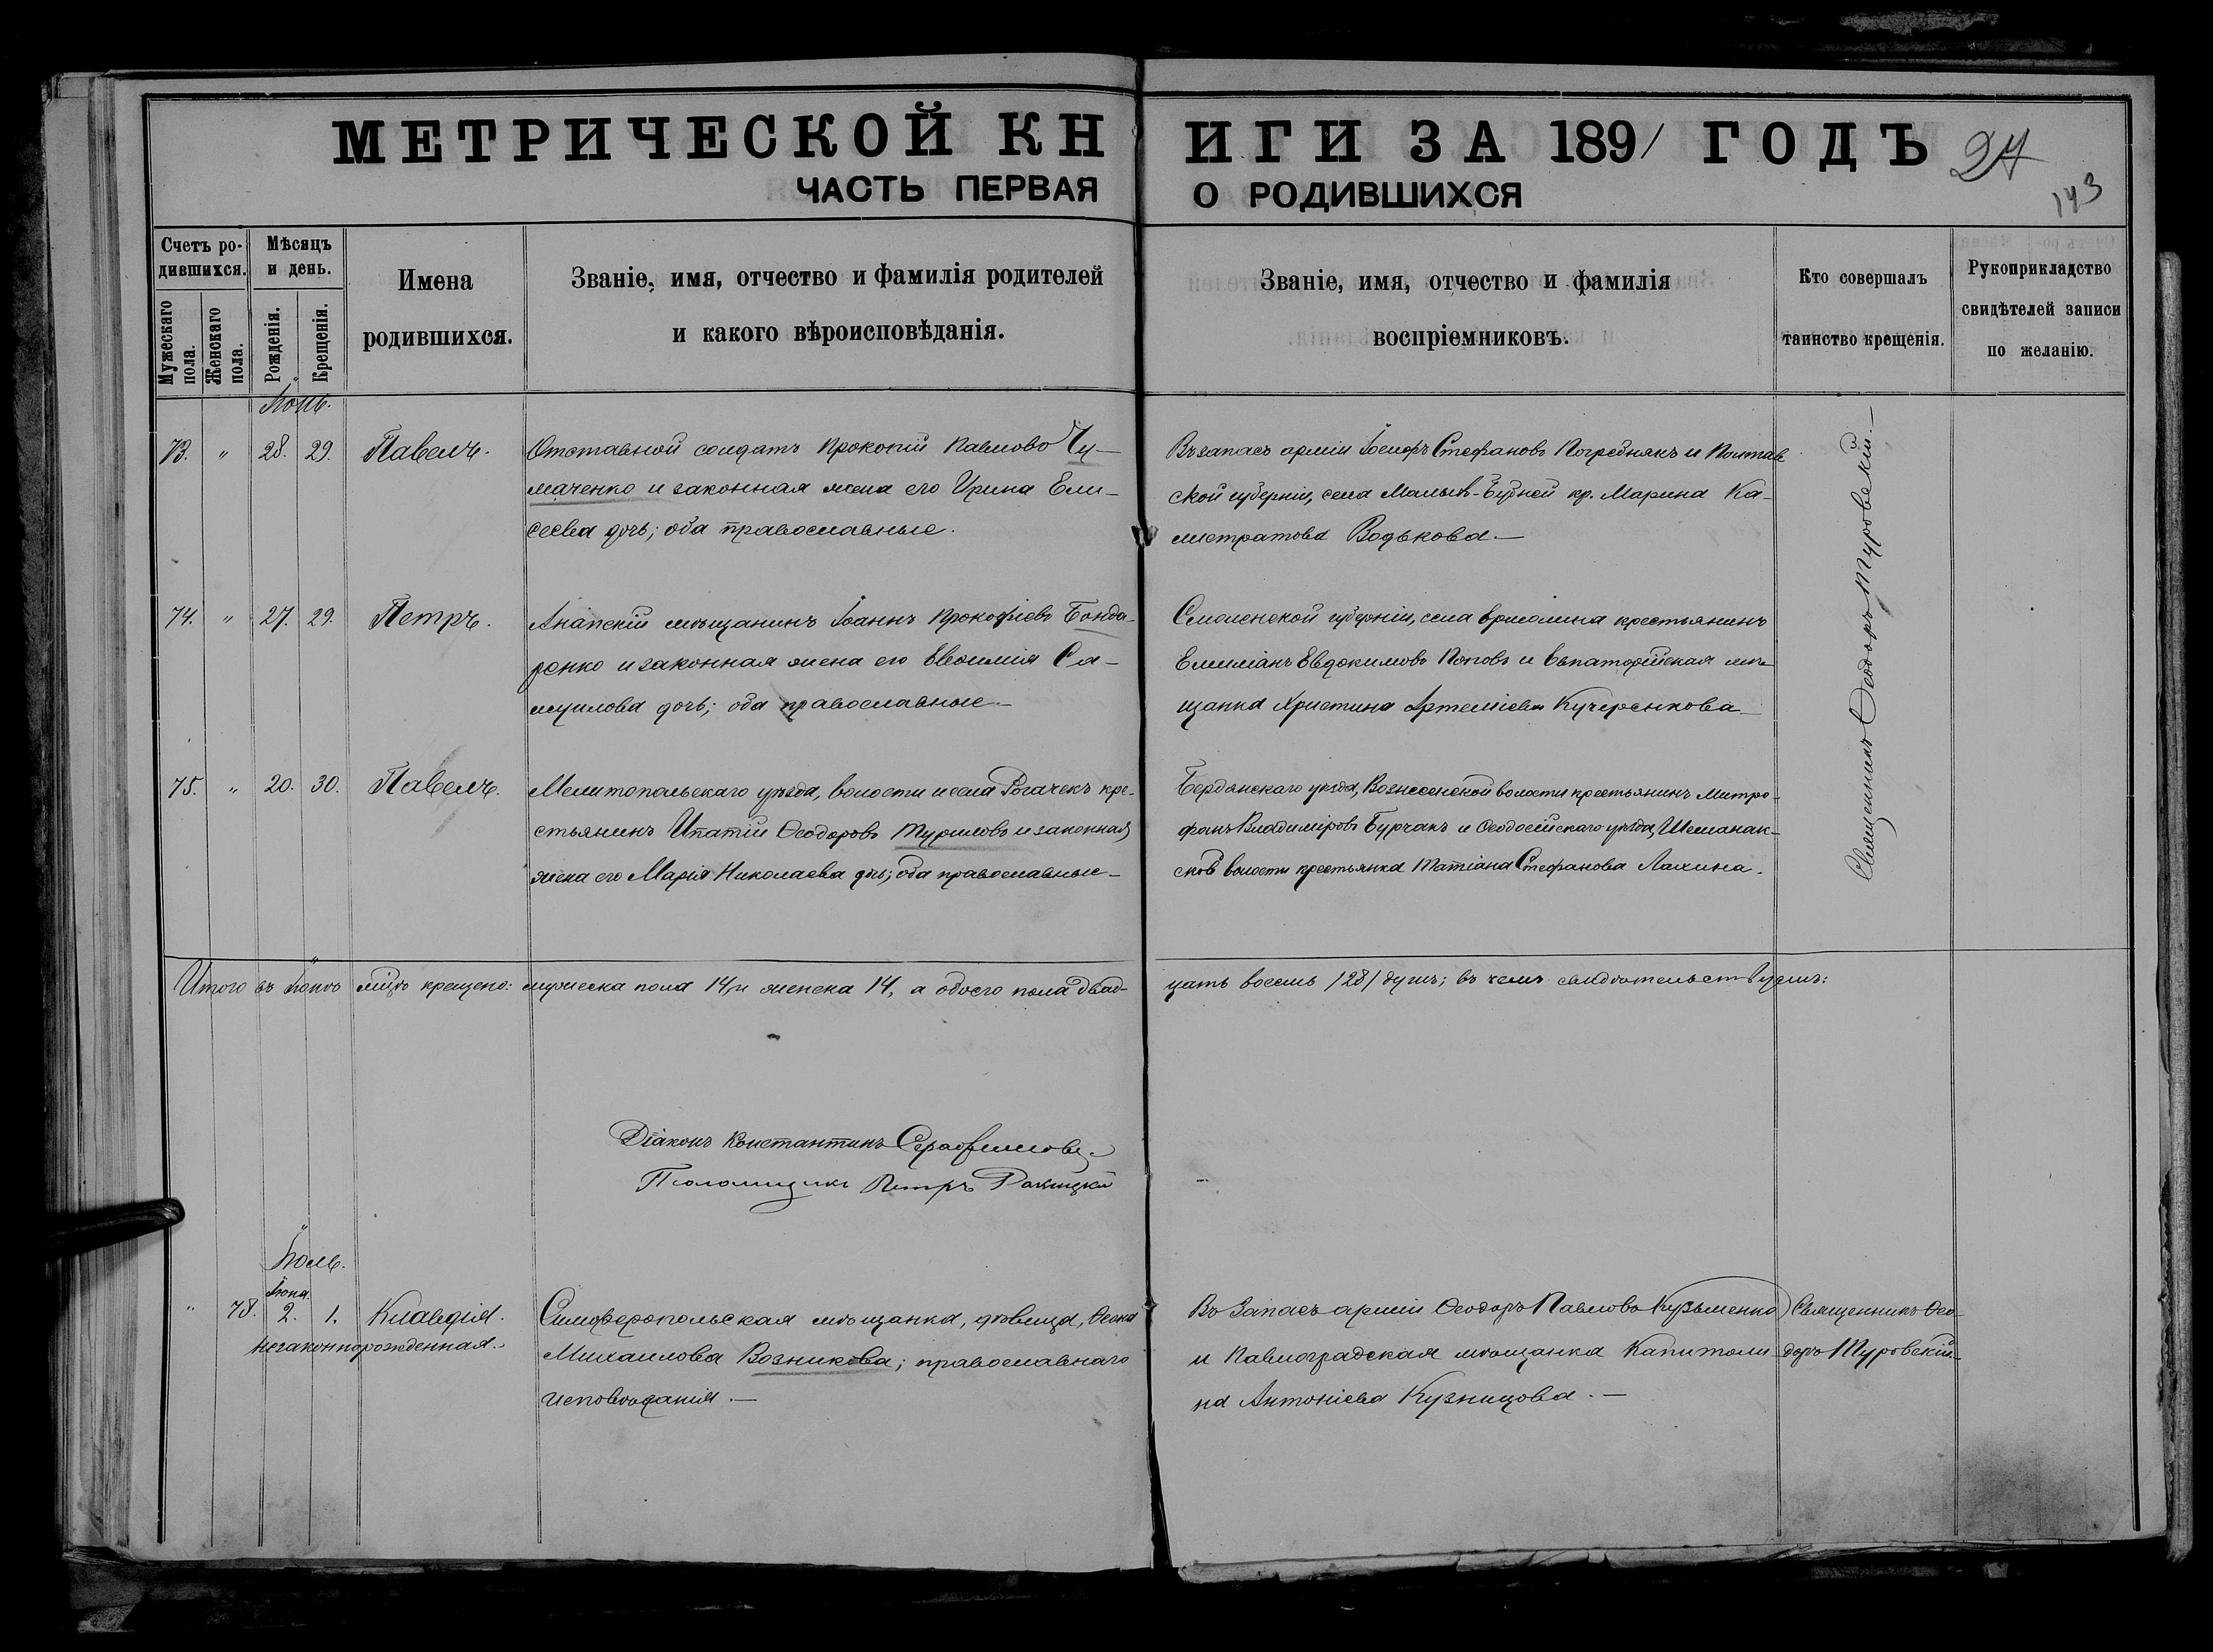 МЕТРИЧЕСКОЙ КНИГИ ЗА 1891 ГОДЪ
24
143
ЧАСТЬ ПЕРВАЯ О РОДИВШИХСЯ
Счетъ родившихся.
Мужескаго пола.
Женскаго пола.
Мѣсяцъ и день.
Рожденія.
Крещенія.
Имена
родившихся.
Званіе, имя, отчество и фамилія родителей
и какого вѣроисповѣданія.
Званіе, имя, отчество и фамилія
воспріемниковъ.
Кто совершалъ
таинство крещенія.
Рукоприкладство
свидѣтелей записи
по желанію.
Іюнь.
73. " 28. 29. Павелъ.
Отставной солдатъ Прокопій Павловъ Чу-
маченко и законная жена его Ирина Ели-
сеева дочь; оба православные.
Въ запасѣ арміи Іосифъ Стефановъ Погребнякъ и Полтав
ской губерніи, села Малыя-Будней кр. Марина Ка-
листратова Водькова.—
Священникъ Ѳеодоръ Туровскій.—
74. " 27. 29. Петръ.
Анапскій мѣщанинъ Іоаннъ Прокофіевъ Бонда-
ренко и законная жена его Евѳимія Са-
муилова дочь; оба православные.—
Смоленской губерніи, села Ермолина крестьянинъ
Емиліанъ Евдокимовъ Поповъ и Евпаторійская мѣ-
щанка Христина Артеміева Кучеренкова
75. " 20. 30. Павелъ.
Мелитопольскаго уѣзда, волости и села Рогачекъ кре-
стьянинъ Ипатій Ѳеодоровъ Туриловъ и законная
жена его Марія Николаева дочь; оба православные—
Бердянскаго уѣзда, Вознесенской волости крестьянинъ Митро-
фанъ Владиміровъ Бурчакъ и Ѳеодосійскаго уѣзда, Шейхмонак-
ской волости крестьянка Татіана Стефанова Лахина.
Итого въ Іюнѣ мцѣ крещено: мужеска пола 14, и женска 14, а обоего пола двад-
цать восемь /28/ душъ; въ чемъ свидѣтельствуемъ:
Діаконъ Константинъ Серафимовъ.
Псаломщикъ Петръ Ракицкій
Іюль.
Іюня
" 78. 2. 1. Клавдія.
Незаконнорожденная.
Симферопольская мѣщанка, дѣвица, Ѳеона
Михаилова Возникова; православнаго
исповѣданія.—
Въ запасѣ арміи Ѳеодоръ Павловъ Кузьменко
и Павлоградская мѣщанка Капитоли
на Антоніева Кузнецова.—
Священникъ Ѳео-
доръ Туровскій—